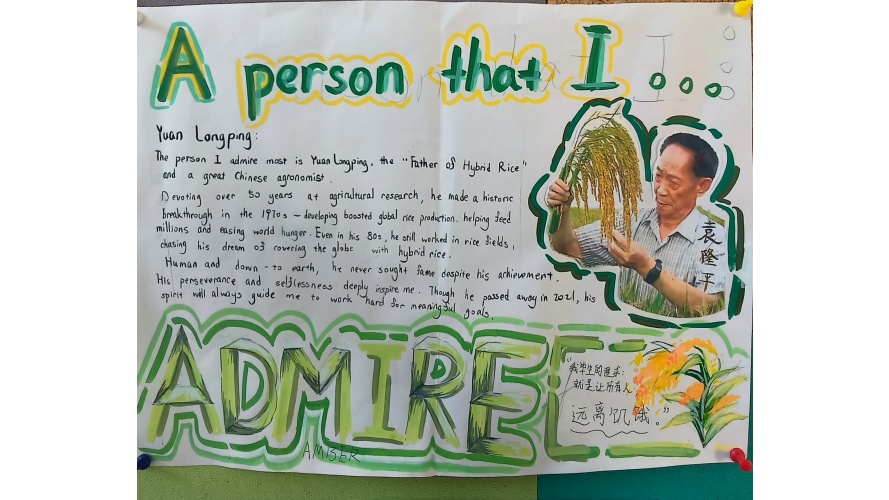 A person that I ...
Yuan Longping:
The person I admire most is Yuan Longping, the "Father of Hybrid Rice"
and a great Chinese agronomist.
Devoting over 50 years at agritural research, he made a historic
breakthrough in the 1970s - developing boosted global rice production. helping feed
millions and easing world hunger. Even in his 80s, he still worked in rice fields,
chasing his dream of covering the globe with hybrid rice.
Human and down-to earth, he never sought fame despite his achievement.
His perseverance and selflessness deeply inspire me. Though he passed away in 2021, his
spirit will always guide me to work hard for meaningful goals.
袁隆平
ADMIRE
AMBER
"我毕生的追求:
就是让所有人
远离饥饿。"